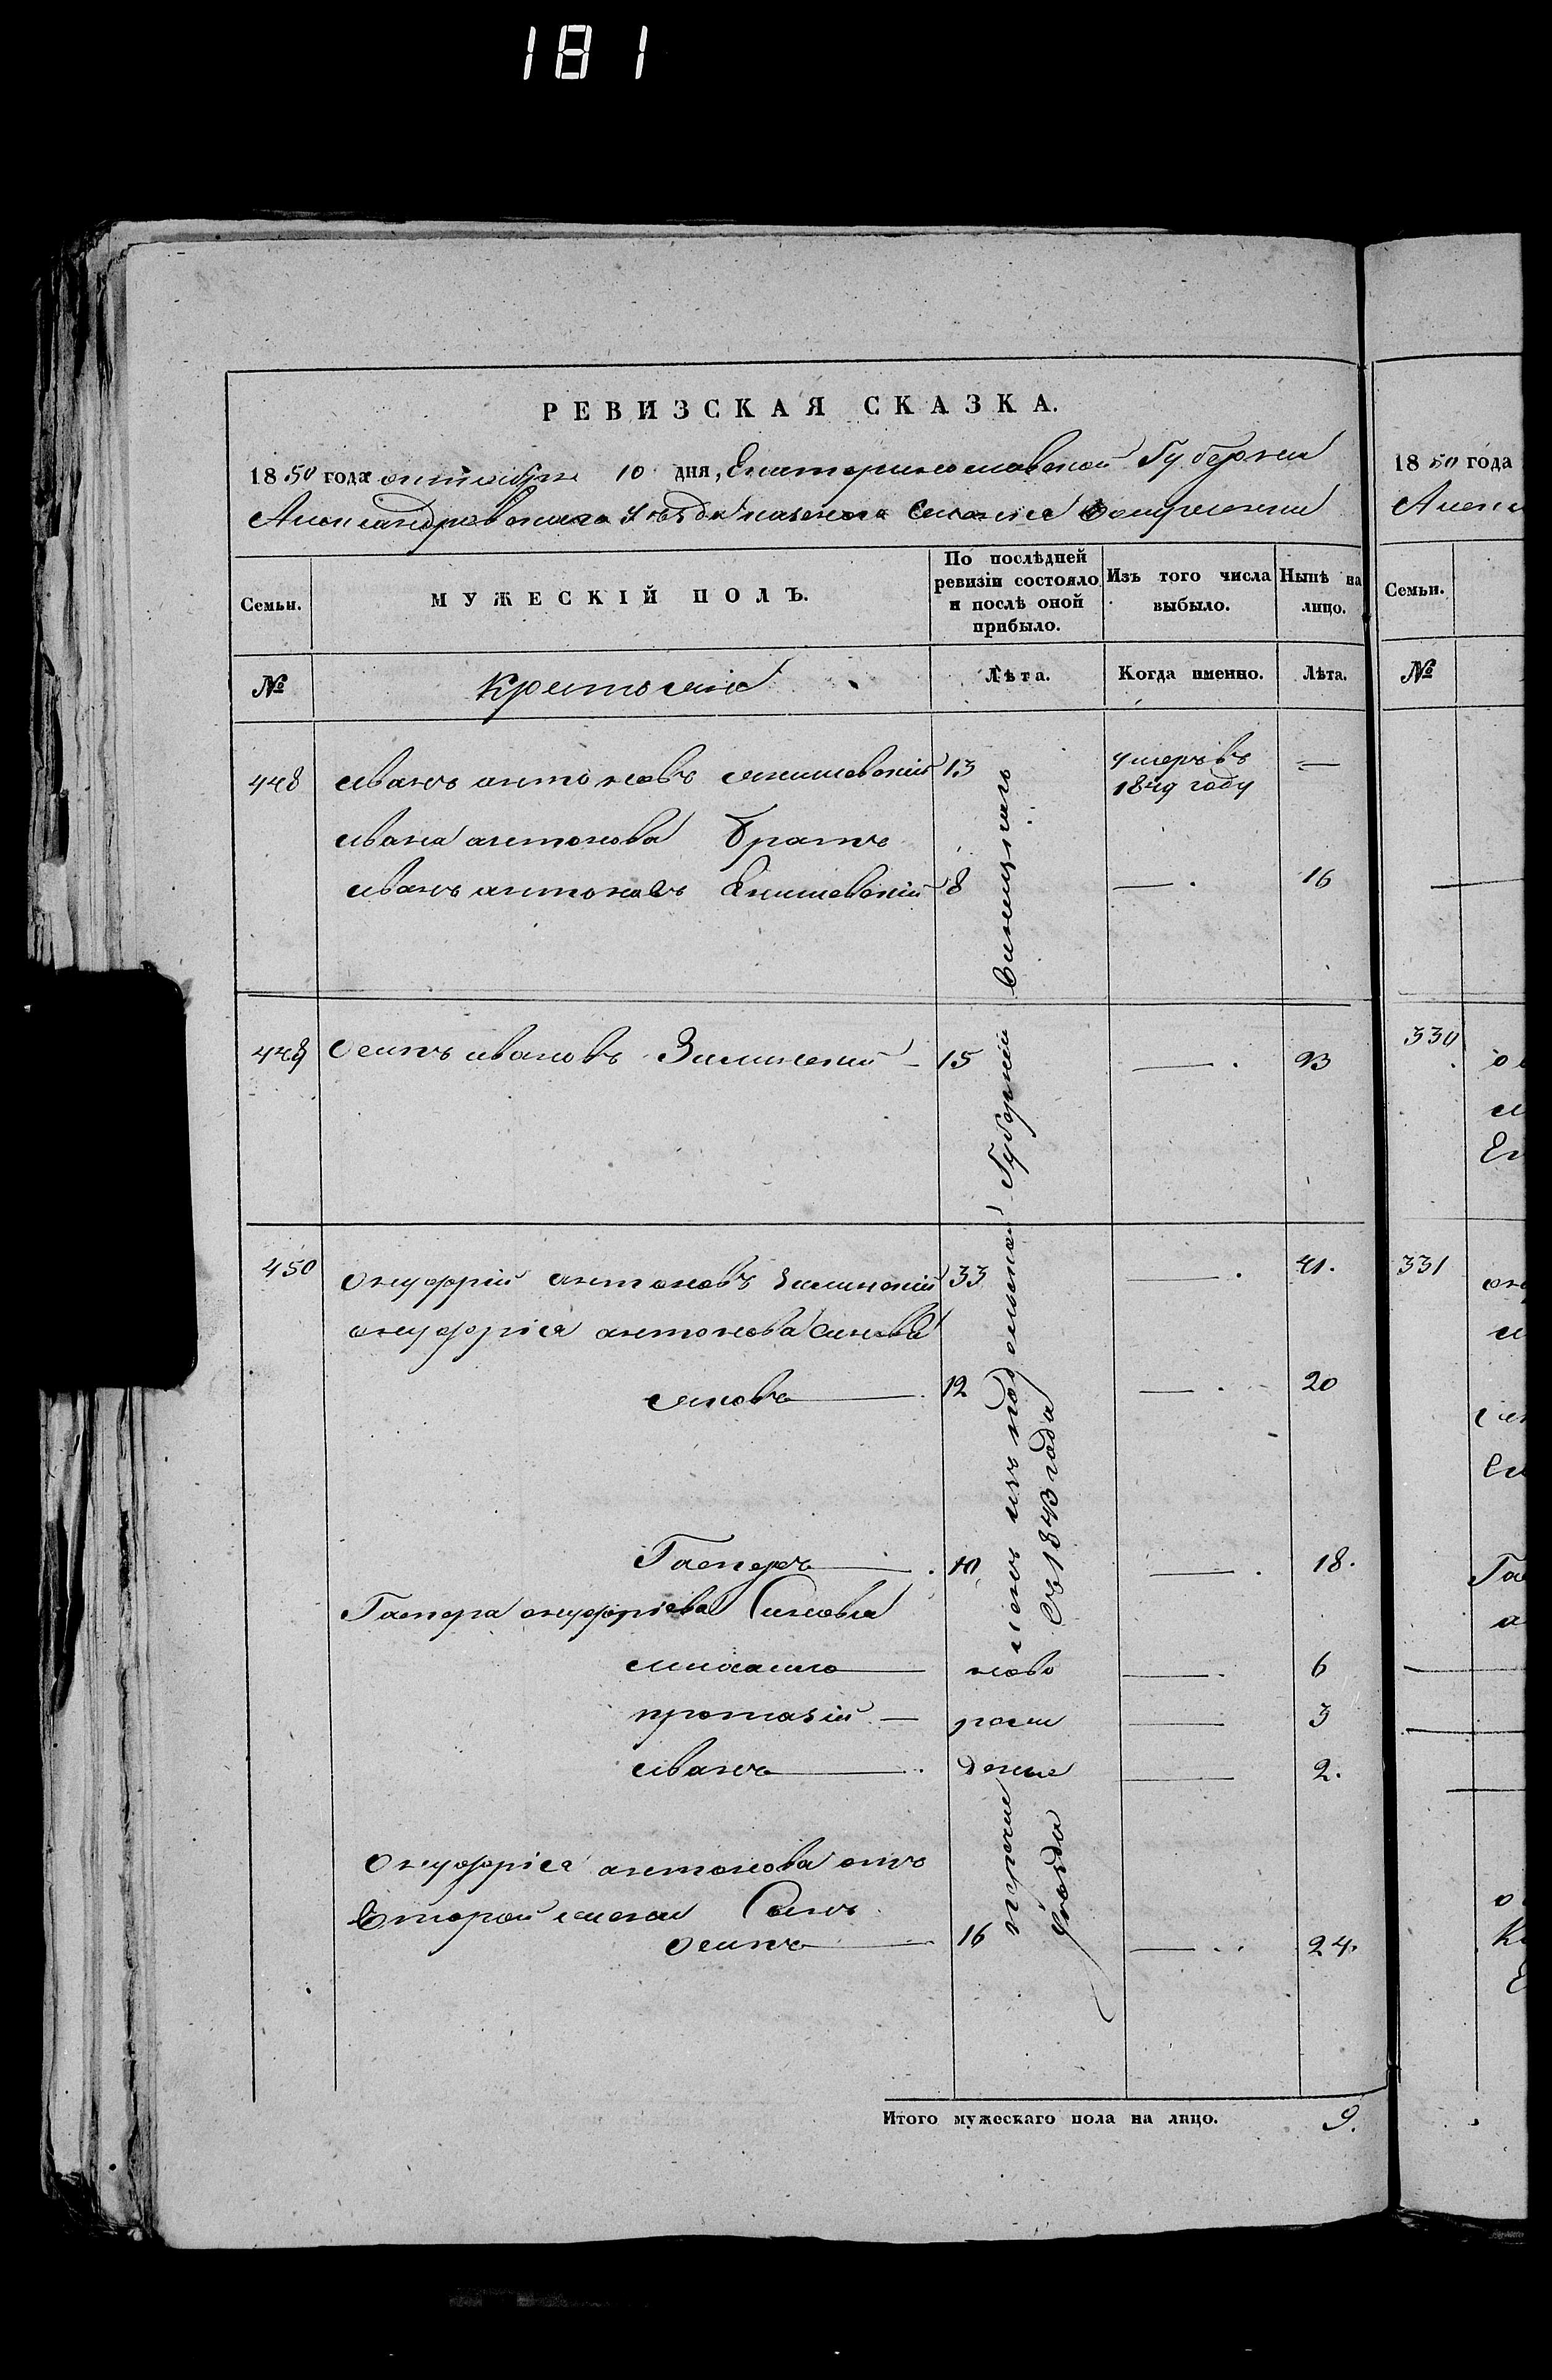 181
РЕВИЗСКАЯ СКАЗКА.
1850 года октября 10 дня, Екатеринославской Губернии
Александровскаго Уезда казеннаго Селенія
Семьи.
МУЖЕСКІЙ ПОЛЪ.
По послѣдней ревизіи состояло и послѣ оной прибыло.
Изъ того числа выбыло.
Нынѣ на лицо.
№
Крестьяне
Лѣта.
Когда именно.
Лѣта.
448 Иванъ Антоновъ Янишевскій 13 умеръ въ 1849 году —
Ивана Антонова братъ
Иванъ Антоновъ Янишевскій 8 — 16
449 Осипъ Ивановъ Зилинскій — 15 — 23
450 Онуфрій Антоновъ Зилинскій 33 — 41.
Онуфрія Антонова Синовья
Яковъ 12 — 20
Гаспоръ 10 — 18.
Гаспора Онуфріева Синовья
Михаило ново — 6
Протазій — рож — 3
Иванъ деные — 2.
Онуфрія Антонова отъ
Второй жены Сынъ
Осипъ 16 — 24.
изъ подольской Губерніи Винницкаго
съ 1843 года
уезда
Итого мужескаго пола на лицо. 9.
1850 года
Алекс
Семьи.
№
330
331